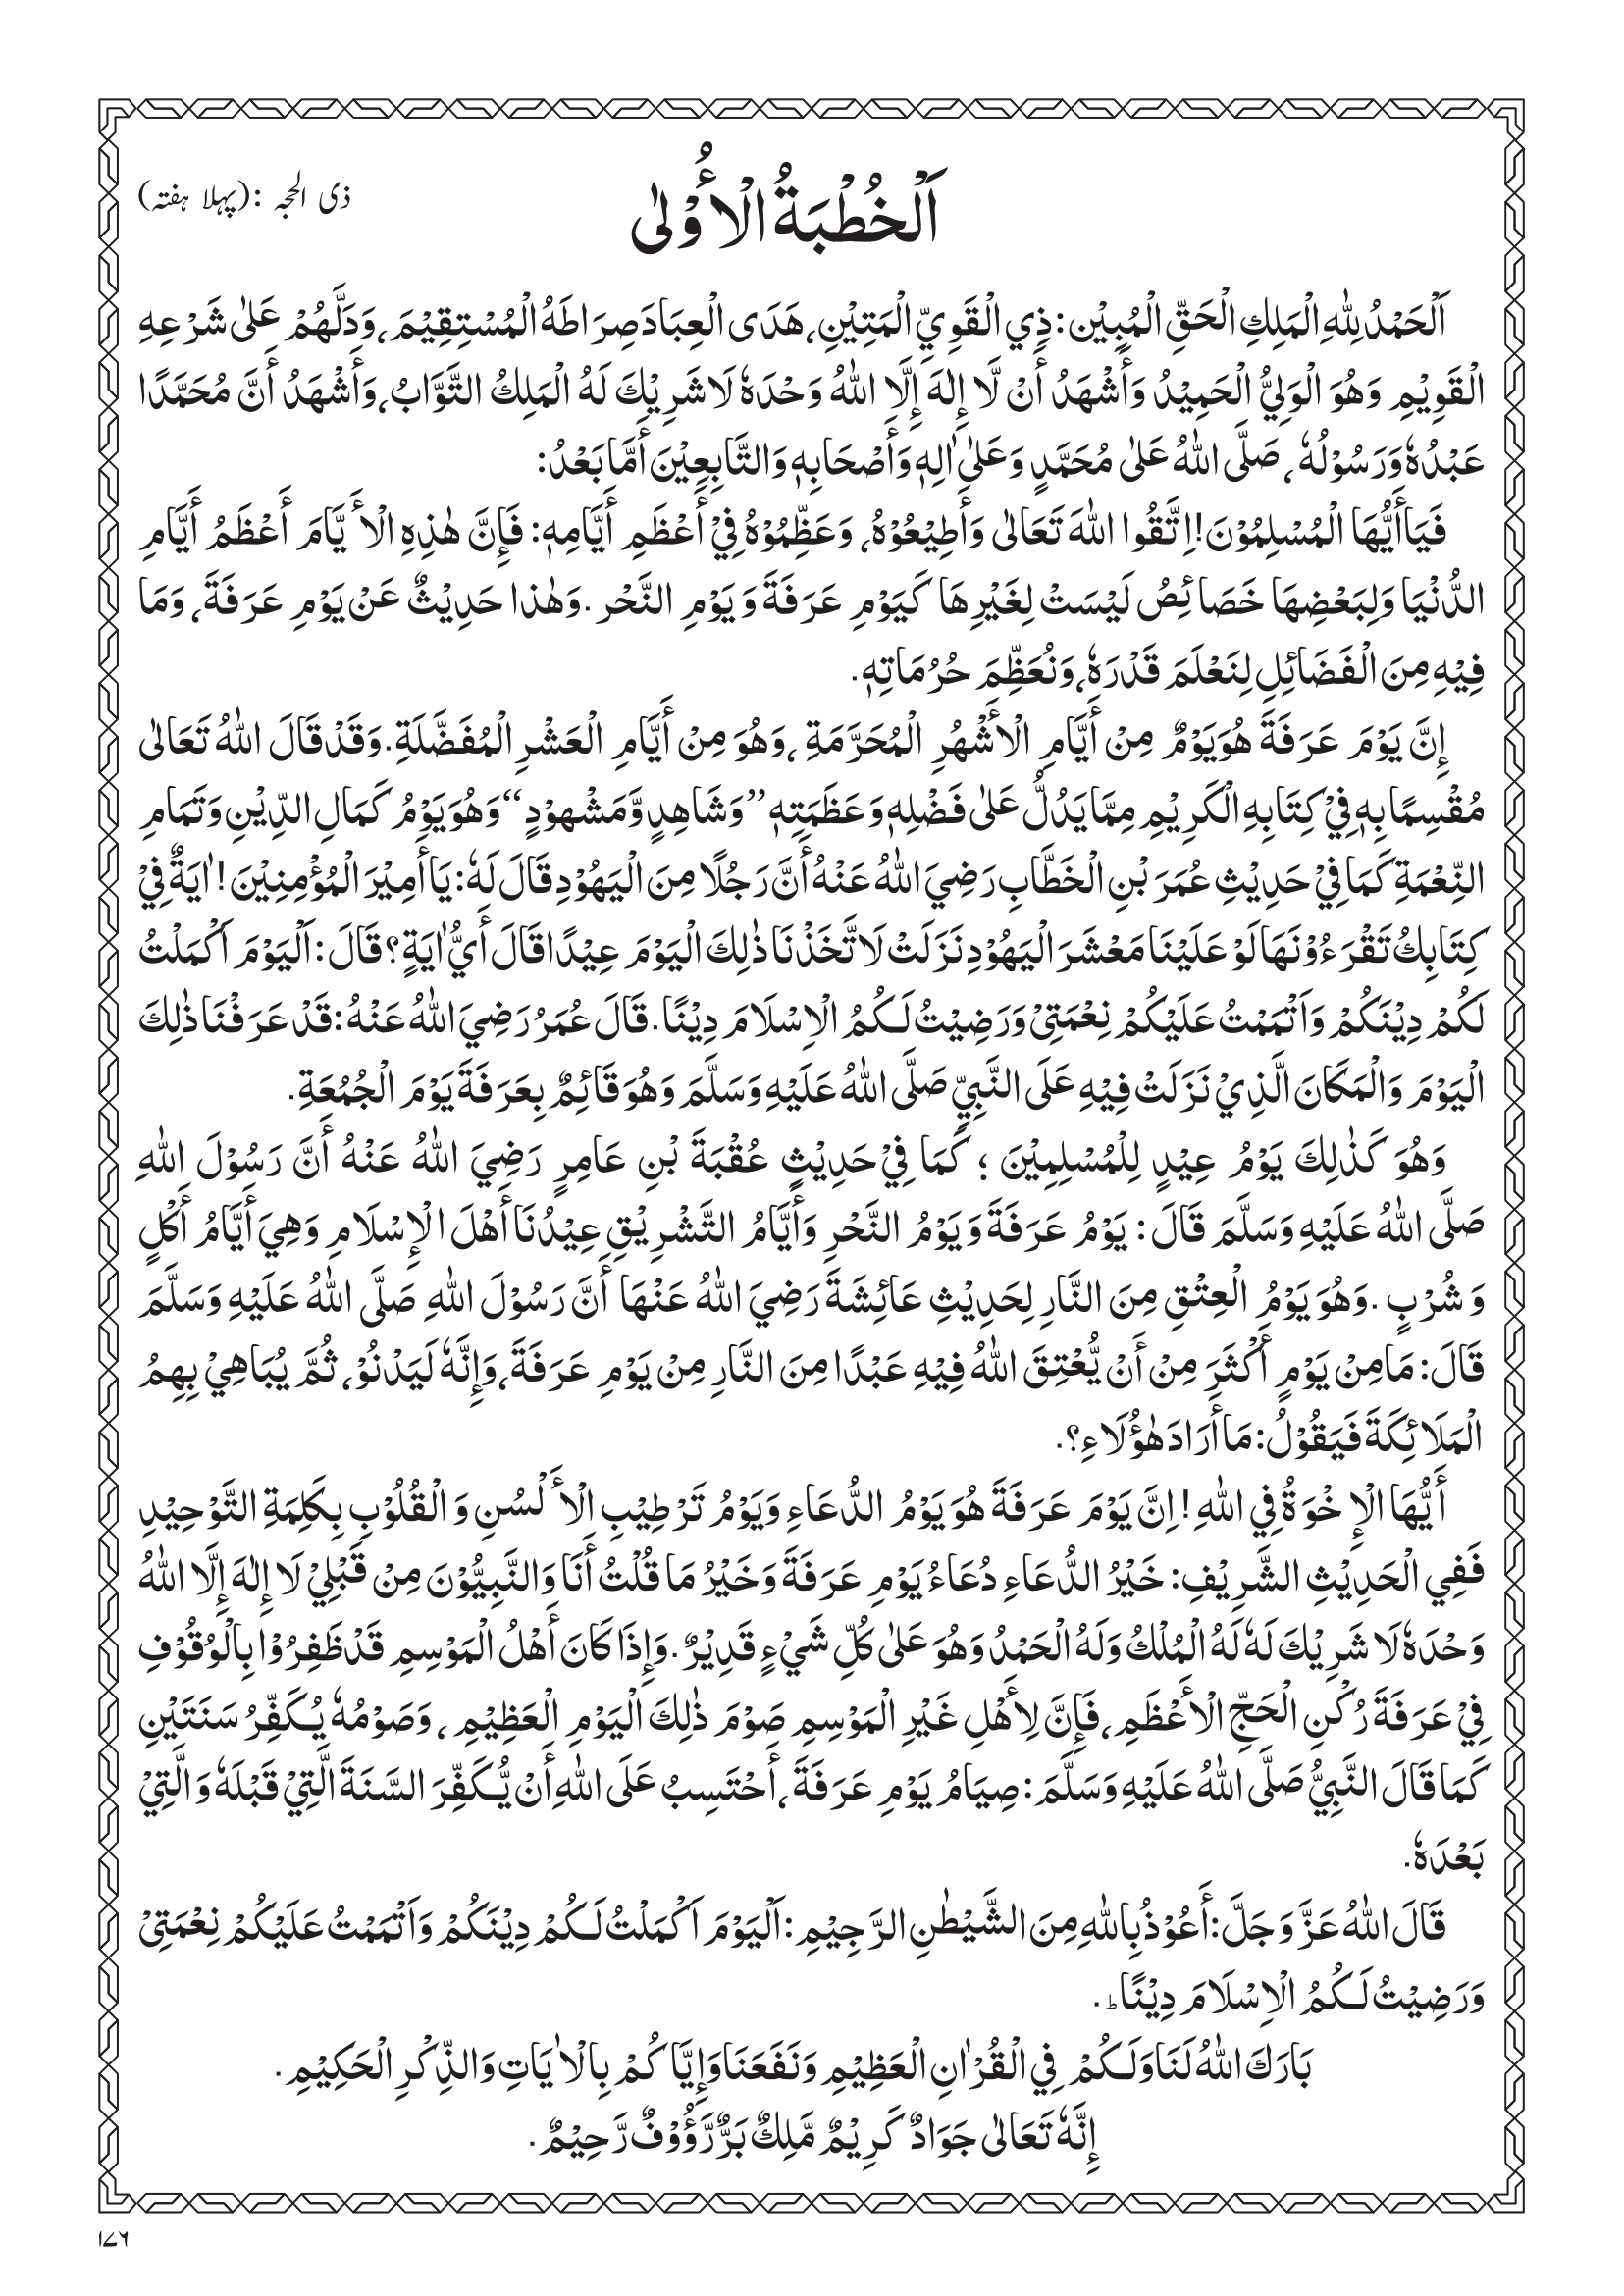 ذی الحجہ :(پہلا ہفتہ)
اَلْخُطْبَةُ الْأُوْلٰى
اَلْحَمْدُ لِلّٰهِ الْمَلِكِ الْحَقِّ الْمُبِيْن: ذِي الْقَوِيِّ الْمَتِيْنِ، هَدَى الْعِبَادَ صِرَاطَهُ الْمُسْتِقِيْمَ، وَدَلَّهُمْ عَلٰى شَرْعِهِ
الْقَوِيْمِ وَهُوَ الْوَلِيُّ الْحَمِيْدُ وَأَشْهَدُ أَنْ لَّا إِلٰهَ إِلَّا اللهُ وَحْدَهٗ لَا شَرِيْكَ لَهُ الْمَلِكُ التَّوَّابُ، وَأَشْهَدُ أَنَّ مُحَمَّدًا
عَبْدُهٗ وَرَسُوْلُهٗ ، صَلَّى اللهُ عَلٰى مُحَمَّدٍ وَعَلٰى اٰلِهٖ وَأَصْحَابِهٖ وَالتَّابِعِيْنَ أَمَّا بَعْدُ:
فَيَا أَيُّهَا الْمُسْلِمُوْنَ! اِتَّقُوا اللهَ تَعَالٰى وَأَطِيْعُوْهُ، وَعَظِّمُوْهُ فِيْ أَعْظَمِ أَيَّامِهٖ: فَإِنَّ هٰذِهِ الْأَيَّامَ أَعْظَمُ أَيَّامِ
الدُّنْيَا وَلِبَعْضِهَا خَصَائِصُ لَيْسَتْ لِغَيْرِهَا كَيَوْمِ عَرَفَةَ وَ يَوْمِ النَّحْر .وَهٰذا حَدِيْثٌ عَنْ يَوْمِ عَرَفَةَ، وَمَا
فِيْهِ مِنَ الْفَضَائِلِ لِنَعْلَمَ قَدْرَهٗ، وَنُعَظِّمَ حُرُمَاتِهٖ.
إِنَّ يَوْمَ عَرَفَةَ هُوَ يَوْمٌ مِنْ أَيَّامِ الْأَشْهُرِ الْمُحَرَّمَةِ ، وَهُوَ مِنْ أَيَّامِ الْعَشْرِ الْمُفَضَّلَةِ. وَقَدْ قَالَ اللهُ تَعَالٰى
مُقْسِمًا بِهٖ فِيْ كِتَابِهِ الْكَرِيْمِ مِمَّا يَدُلُّ عَلٰى فَضْلِهٖ وَعَظَمَتِهٖ ”وَشَاهِدٍ وَّمَشْهوْدٍ“ وَهُوَ يَوْمُ كَمَالِ الدِّيْنِ وَتَمَامِ
النِّعْمَةِ كَمَا فِيْ حَدِيْثِ عُمَرَ بْنِ الْخَطَّابِ رَضِيَ اللهُ عَنْهُ أَنَّ رَجُلًا مِنَ الْيَهُوْدِ قَالَ لَهٗ: يَا أَمِيْرَ الْمُؤْمِنِيْنَ! اٰيَةٌ فِيْ
كِتَابِكُ تَقْرَءُوْنَهَا لَوْ عَلَيْنَا مَعْشَرَ الْيَهُوْدِ نَزَلَتْ لَاتَّخَذْنَا ذٰلِكَ الْيَوْمَ عِيْدًا قَالَ أَيُّ اٰيَةٍ؟ قَالَ: اَلْيَوْمَ اَكْمَلْتُ
لَكُمْ دِيْنَكُمْ وَاَتْمَمْتُ عَلَيْكُمْ نِعْمَتِيْ وَرَضِيْتُ لَـكُمُ الْاِسْلَامَ دِيْنًا. قَالَ عُمَرُ رَضِيَ اللهُ عَنْهُ: قَدْ عَرَفْنَا ذٰلِكَ
الْيَوْمَ وَالْمَكَانَ الَّذِيْ نَزَلَتْ فِيْهِ عَلَى النَّبِيِّ صَلَّى اللهُ عَلَيْهِ وَسَلَّمَ وَهُوَ قَائِمٌ بِعَرَفَةَ يَوْمَ الْجُمُعَةِ.
وَهُوَ كَذٰلِكَ يَوْمُ عِيْدٍ لِلْمُسْلِمِيْنَ ؛ كَمَا فِيْ حَدِيْثِ عُقْبَةَ بْنِ عَامِرٍ رَضِيَ اللهُ عَنْهُ أَنَّ رَسُوْلَ اللهِ
صَلَّى اللهُ عَلَيْهِ وَسَلَّمَ قَالَ : يَوْمُ عَرَفَةَ وَ يَوْمُ النَّحْرِ وَأَيَّامُ التَّشْرِيْقِ عِيْدُنَا أَهْلَ الْإِسْلَامِ وَهِيَ أَيَّامُ أَكْلٍ
وَ شُرْبٍ .وَهُوَ يَوْمُ الْعِتْقِ مِنَ النَّارِ لِحَدِيْثِ عَائِشَةَ رَضِيَ اللهُ عَنْهَا أَنَّ رَسُوْلَ اللهِ صَلَّى اللهُ عَلَيْهِ وَسَلَّمَ
قَالَ: مَا مِنْ يَوْمٍ أَكْثَرَ مِنْ أَنْ يُّعْتِقَ اللهُ فِيْهِ عَبْدًا مِنَ النَّارِ مِنْ يَوْمِ عَرَفَةَ، وَإِنَّهٗ لَيَدْنُوْ، ثُمَّ يُبَاهِيْ بِهِمُ
الْمَلَائِكَةَ فَيَقُوْلُ: مَا أَرَادَ هٰؤُلَاءِ؟.
أَيُّهَا الْإِخْوَةُ فِي اللهِ! اِنَّ يَوْمَ عَرَفَةَ هُوَ يَوْمُ الدُّعَاءِ وَيَوْمُ تَرْطِيْبِ الْأَلْسُنِ وَ الْقُلُوْبِ بِكَلِمَةِ التَّوْحِيْدِ
فَفِي الْحَدِيْثِ الشَّرِيْفِ: خَيْرُ الدُّعَاءِ دُعَاءُ يَوْمِ عَرَفَةَ وَخَيْرُ مَا قُلْتُ أَنَا وَالنَّبِيُّوْنَ مِنْ قَبْلِيْ لَا إِلٰهَ إِلَّا اللهُ
وَحْدَهٗ لَا شَرِيْكَ لَهٗ لَهُ الْمُلْكُ وَلَهُ الْحَمْدُ وَهُوَ عَلٰى كُلِّ شَيْءٍ قَدِيْرٌ. وَإِذَا كَانَ أَهْلُ الْمَوْسِمِ قَدْ ظَفِرُوْا بِالْوُقُوْفِ
فِيْ عَرَفَةَ رُكْنِ الْحَجِّ الْأَعْظَمِ، فَإِنَّ لِأَهْلِ غَيْرِ الْمَوْسِمِ صَوْمَ ذٰلِكَ الْيَوْمِ الْعَظِيْمِ ، وَصَوْمُهٗ يُـكَفِّرُ سَنَتَيْنِ
كَمَا قَالَ النَّبِيُّ صَلَّى اللهُ عَلَيْهِ وَسَلَّمَ: صِيَامُ يَوْمِ عَرَفَةَ، أَحْتَسِبُ عَلَى اللهِ أَنْ يُّـكَفِّرَ السَّنَةَ الَّتِيْ قَبْلَهٗ وَ الَّتِيْ
بَعْدَهٗ.
قَالَ اللهُ عَزَّ وَجَلَّ: أَعُوْذُ بِاللهِ مِنَ الشَّيْطٰنِ الرَّجِيْمِ: اَلْيَوْمَ اَكْمَلْتُ لَـكُمْ دِيْنَكُمْ وَاَتْمَمْتُ عَلَيْكُمْ نِعْمَتِيْ
وَرَضِيْتُ لَـكُمُ الْاِسْلَامَ دِيْنًاؕ.
بَارَكَ اللهُ لَنَا وَلَـكُمْ فِي الْقُرْاٰنِ الْعَظِيْمِ وَنَفَعَنَا وَإِيَّاكُمْ بِالْاٰيَاتِ وَالذِّكْرِ الْحَكِيْمِ.
إِنَّهٗ تَعَالٰى جَوَادٌ كَرِيْمٌ مَّلِكٌ بَرٌّ رَّؤُوْفٌ رَّحِيْمٌ.
۱۷۶